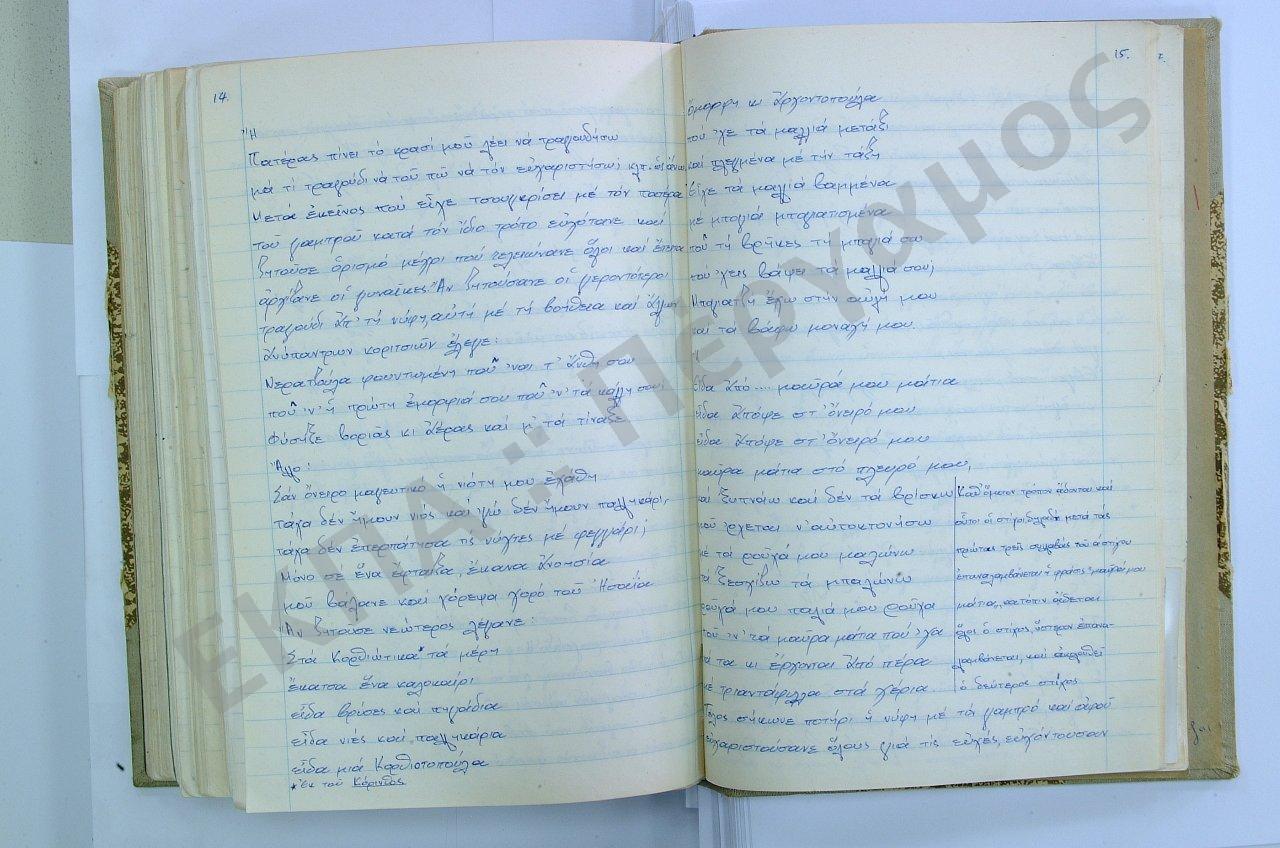 14.
Ἤ
Πατέρας πίνει τὸ κρασί μοῦ λέει νά τραγουδήσω
μά τί τραγούδι νά τοῦ πῶ νά τόν εὐχαριστήσω; κλπ. ὡς ἄνω
Μετά ἐκεῖνος πού εἶχε τσουγκρίσει μέ τόν πατέρα
τοῦ γαμπροῦ κατά τόν ἴδιο τρόπο εὐχότανε καί
ζητοῦσε ὁρισμό μέχρι πού τελειώνανε ὅλοι καί ἔπειτα
ἀρχίζανε οἱ γυναῖκες. Ἄν ζητούσανε οἱ γεροντότεροι
τραγούδι ἀπ' τή νύφη, αὐτή μέ τή βοήθεια καί ἄλλων
ἀνύπαντρων κοριτσιῶν ἔλεγε:
Νερατζούλα φουντωμένη ποῦ 'ναι τ' ἄνθη σου
ποῦ 'ν' ἡ πρώτη ἐμορφιά σου ποῦ 'ν' τα κάλλη σου;
Φύσηξε βοριᾶς κι ἀέρας καί μ' τά τίναξε
Ἄλλο:
Σάν ὄνειρο μαγευτικό ἡ νιότη μου ἐχάθη
τάχα δέν ἤμουν νιός καί 'γώ δέν ἤμουν παλληκάρι,
τάχα δέν ἐπερπάτησα τίς νύχτες μέ φεγγάρι;
Μόνο σέ ἕνα ἔφταιξα, ἔκανα ἀνομσία
μοῦ βάλανε καί χόρεψα χορό τοῦ Ἡσαΐα
Ἄν ζητοῦσε νεώτερος λέγανε:
Στά Κορθιώτικα* τά μέρη
ἔκατσα ἕνα καλοκαίρι
εἶδα βρύσες καί πηγάδια
εἶδα νιές καί παλληκάρια
εἶδα μιά Κορθιοτοπούλα
*ἐκ τοῦ Κόρινθος
15.
ὄμορφη κι ἀρχοντοπούλα
πού 'χε τά μαλλιά μετάξι
καί πλεγμένα μέ τήν τάξη
Εἶχε τά μαλλιά βαμμένα
μέ μπογιά μπογιατισμένα
ποῦ τή βρῆκες τή μπογιά σου
πού 'χεις βάψει τα μαλλιά σου;
Μπογιατζή ἔχω στήν αὐλή μου
καί τά βάφω μοναχή μου.
Ἤ
Εἶδα ἀπό.... μαῦρά μου μάτια
εἶδα ἀπόψε στ' ὄνειρό μου
εἶδα ἀπόψε στ' ὄνειρό μου
μαῦρα μάτια στό πλευρό μου,
καί ξυπνάω καί δέν τά βρίσκω
μοῦ ἔρχεται ν' αὐτοκτονήσω
μέ τά ροῦχά μου μαλώνω
τά ξεσχίζω τά μπαλώνω
ροῦχά μου παλιά μου ροῦχα
ποῦ 'ν' τά μαῦρα μάτια πού 'χα
νά τα κι ἔρχονται ἀπό πέρα
μέ τριαντάφυλλα στά χέρια.
Καθ' ὅμοιον τρόπον ἄδονται καί
αὐτοί οἱ στίχοι δηλαδή μετά τάς
πρώτας τρεῖς συλλαβάς τοῦ α' στίχου
ἐπαναλαμβάνεται ἡ φράσις "μαῦρά μου
μάτια", κατόπιν ἄδεται
ὅλος ὁ στίχος, ὕστερον ἐπανα-
λαμβάνεται, καί ἀκολουθεῖ
ὁ δεύτερος στίχος
Τέλος σήκωνε ποτήρι ἡ νύφη μέ τό γαμπρό καί ἀφοῦ
εὐχαριστούσανε ὅλους γιά τίς εὐχές, εὐχόντουσαν
ΕΚΠΑ :: Πέργαμος